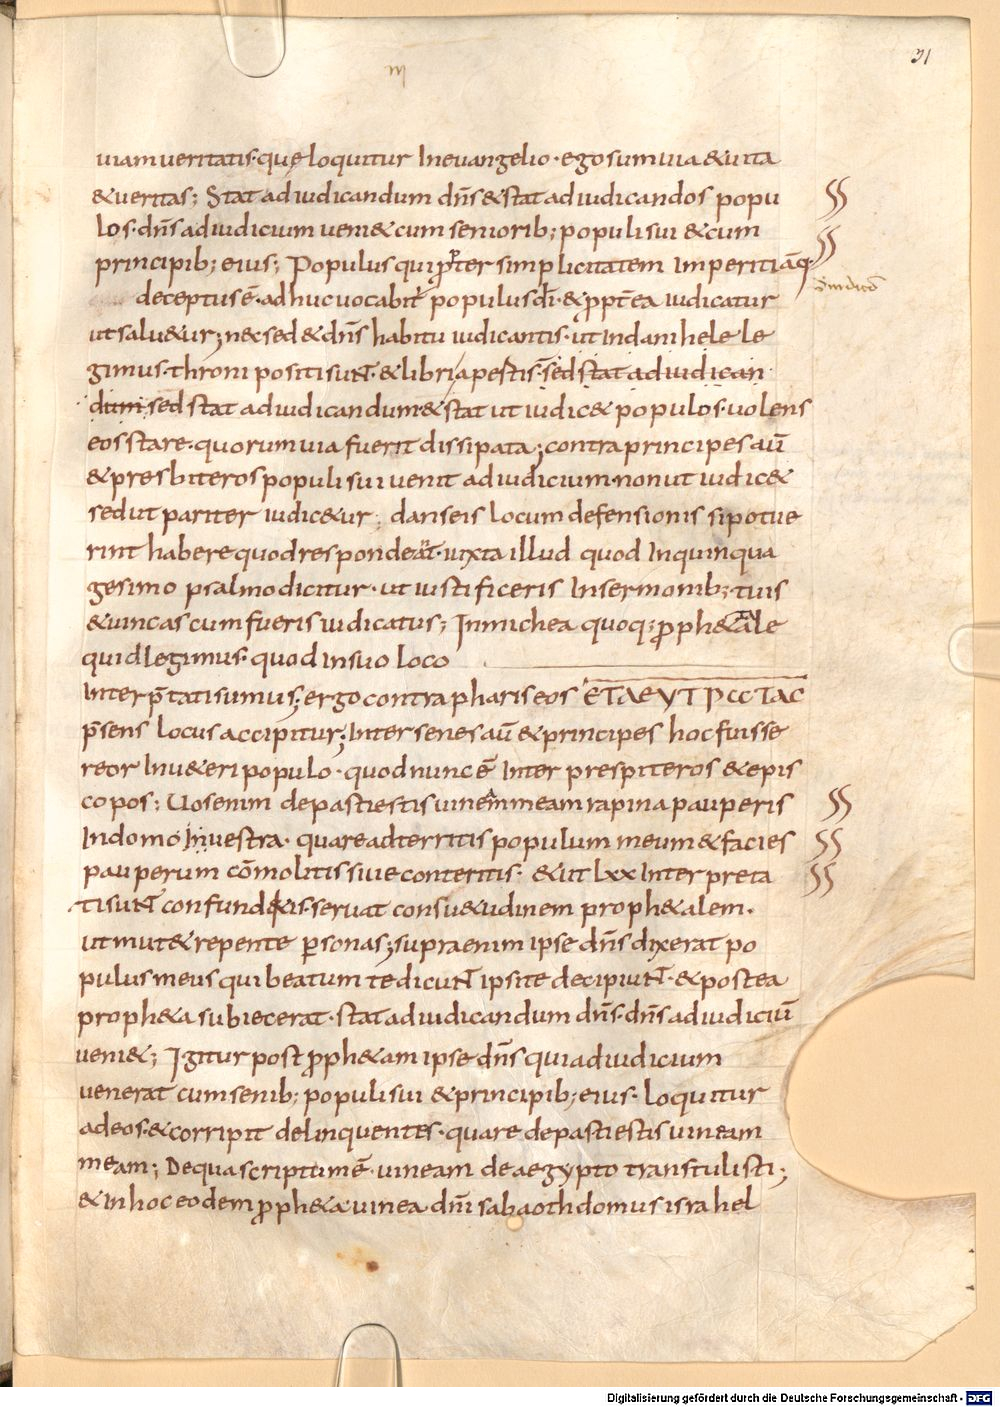 31
uiamueritatis·quę loquitur Ineuangelio·egosumuia &uita
&ueritas; Stat adiudicandum dn̄s &stat adiudicandos popu
los·dn̄s adiudicium ueni&cum seniorib; populisui &cum
principib; eius; Populusqui ꝓpter simplicitatem Imperitiāq·
deceptusē·adhucuocabit populus dī·&ꝓpt̄ea iudicatur
utsalu&ur; n&sed&dn̄s habitu iudicantis·ut Indanihele le
gimus·throni positisunt·&libri apestis·sed stat adiudican
dum sed stat adiudicandum&stat ut iudic& populos·uolens
eosstare·quorumuia fuerit dissipata; contraprincipes aū
&presbiteros populisui uenit adiudicium·nonut iudic&
sedut pariter iudic&ur; danseis locum defensionis sipotue
rint habere quodrespondeat·iuxta illud quod Inquinqua
gesimo psalmodicitur·ut iustificeris Insermonib; tuis
&uincas cumfueris iudicatus; Inmichea quoq; ꝓph&ale
quidlegimus·quod Insuo loco
Interp̄tatisumus; ergo contra phariseos
p̄sens locus accipitur; Inter senes aū &principes hocfuisse
reor Inu&eri populo·quodnuncē Inter prespiteros &epis
copos; Uosenim depastiestis uineam meam rapina pauperis
Indomo Inuestra·quareadterritis populum meum &facies
pauperum cōmolitis siue conteritis·&ut lxx Interpreta
tisunt confund&is·seruat consu&udinem proph&alem·
utmut&repente personas; supraenim ipse dn̄s dixerat po
pulusmeus quibeatum tedicunt ipsite decipiunt·&postea
proph&a subiecerat·stat adiudicandum dn̄s·dn̄s adiudiciū
ueni&; Igitur post ꝓph&am ipse dn̄s quiadiudicium
uenerat cumsenib; populisui &principib; eius·loquitur
adeos·&corripit delinquentes·quare depastiestis uineam
meam; Dequascriptumē·uineam deaegypto transtulisti;
&Inhoc eodem ꝓph&a uinea dn̄i sabaoth domus israhel
Digitalisierung gefördert durch die Deutsche Forschungsgemeinschaft - DFG